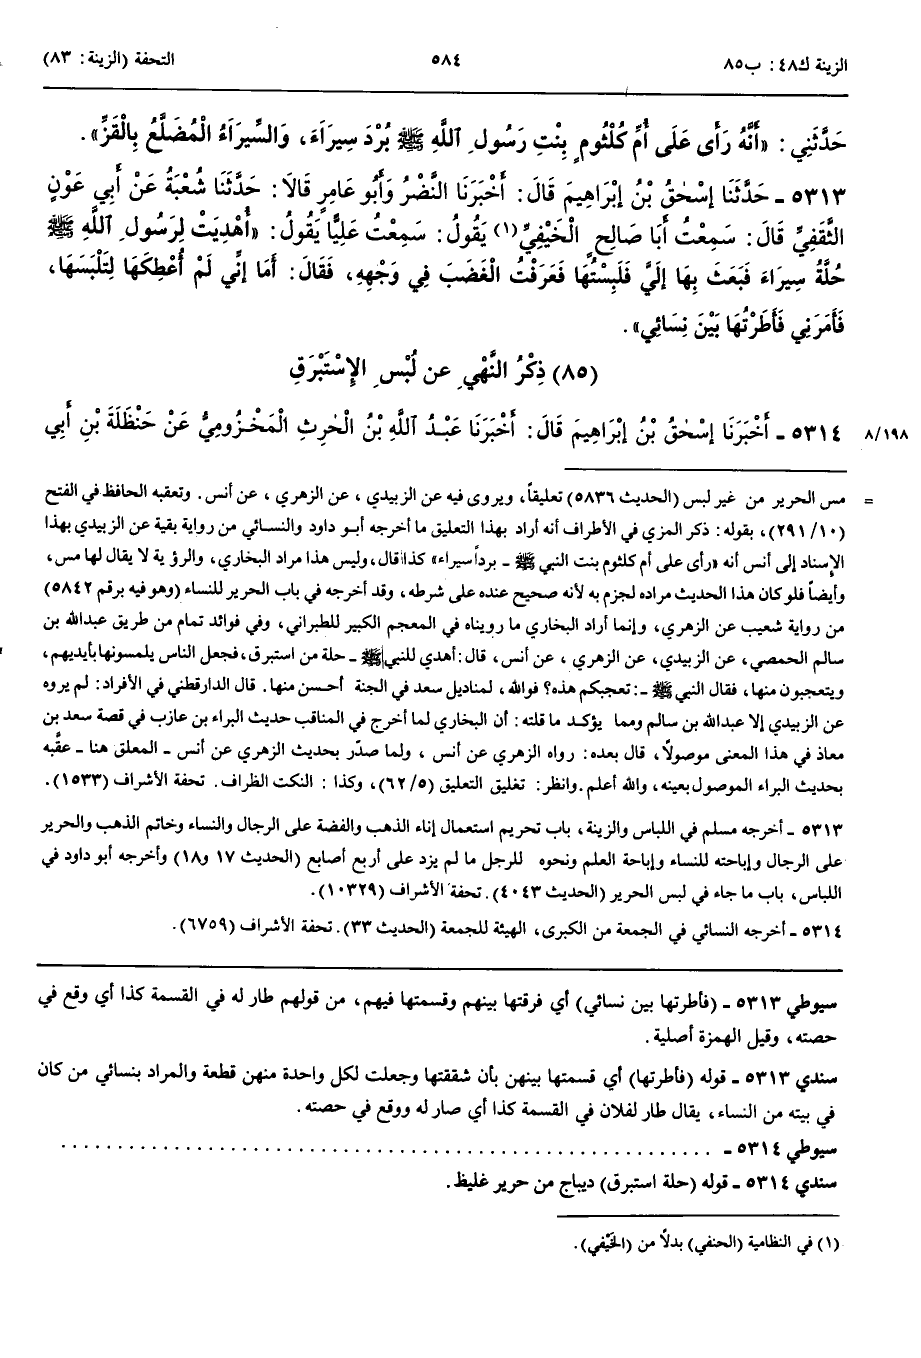 الزينة ك٤٨: ب٨٥
٥٨٤
التحفة (الزينة: ٨٣)
حَدَّثَنِي: «أَنَّهُ رَأَى عَلَى أُمِّ كُلْثُومٍ بِنْتِ رَسُولِ ٱللَّهِ ﷺ بُرْدَ سِيَرَاءَ، وَالسِّيَرَاءُ الْمُضَلَّعُ بِالْقَزِّ».
٥٣١٣ ـ حَدَّثَنَا إِسْحٰقُ بْنُ إِبْرَاهِيمَ قَالَ: أَخْبَرَنَا النَّضْرُ وَأَبُو عَامِرٍ قَالَا: حَدَّثَنَا شُعْبَةُ عَنْ أَبِي عَوْنٍ
الثَّقَفِيِّ قَالَ: سَمِعْتُ أَبَا صَالِحٍ الْخَيْفِيَّ(١) يَقُولُ: سَمِعْتُ عَلِيًّا يَقُولُ: «أُهْدِيَتْ لِرَسُولِ ٱللَّهِ ﷺ
حُلَّةُ سِيَرَاءَ فَبَعَثَ بِهَا إِلَيَّ فَلَبِسْتُهَا فَعَرَفْتُ الْغَضَبَ فِي وَجْهِهِ، فَقَالَ: أَمَا إِنِّي لَمْ أُعْطِكَهَا لِتَلْبَسَهَا،
فَأَمَرَنِي فَأَطَرْتُهَا بَيْنَ نِسَائِي».
(٨٥) ذِكْرُ النَّهْيِ عن لُبْسِ الإِسْتَبْرَقِ
٨/١٩٨ ٥٣١٤ ـ أَخْبَرَنَا إِسْحٰقُ بْنُ إِبْرَاهِيمَ قَالَ: أَخْبَرَنَا عَبْدُ ٱللَّهِ بْنُ الْحٰرِثِ الْمَخْزُومِيُّ عَنْ حَنْظَلَةَ بْنِ أَبِي
= مس الحرير من غير لبس (الحديث ٥٨٣٦) تعليقاً، ويروى فيه عن الزبيدي، عن الزهري، عن أنس. وتعقبه الحافظ في الفتح
(٢٩١/١٠)، بقوله: ذكر المزي في الأطراف أنه أراد بهذا التعليق ما أخرجه أبو داود والنسائي من رواية بقية عن الزبيدي بهذا
الإسناد إلى أنس أنه «رأى على أم كلثوم بنت النبي ﷺ ـ برداً سيراء» كذا قال، وليس هذا مراد البخاري، والرؤية لا يقال لها مس،
وأيضاً فلو كان هذا الحديث مراده لجزم به لأنه صحيح عنده على شرطه، وقد أخرجه في باب الحرير للنساء (وهو فيه برقم ٥٨٤٢)
من رواية شعيب عن الزهري، وإنما أراد البخاري ما رويناه في المعجم الكبير للطبراني، وفي فوائد تمام من طريق عبدالله بن
سالم الحمصي، عن الزبيدي، عن الزهري، عن أنس، قال: أهدي للنبي ﷺ ـ حلة من استبرق، فجعل الناس يلمسونها بأيديهم،
ويتعجبون منها، فقال النبي ﷺ ـ: تعجبكم هذه؟ فوالله، لمناديل سعد في الجنة أحسن منها. قال الدارقطني في الأفراد: لم يروه
عن الزبيدي إلا عبدالله بن سالم ومما يؤكد ما قلته: أن البخاري لما أخرج في المناقب حديث البراء بن عازب في قصة سعد بن
معاذ في هذا المعنى موصولاً، قال بعده: رواه الزهري عن أنس، ولما صدّر بحديث الزهري عن أنس ـ المعلق هنا ـ عقَّبه
بحديث البراء الموصول بعينه، والله أعلم. وانظر: تغليق التعليق (٦٢/٥)، وكذا: النكت الظراف. تحفة الأشراف (١٥٣٣).
٥٣١٣ ـ أخرجه مسلم في اللباس والزينة، باب تحريم استعمال إناء الذهب والفضة على الرجال والنساء وخاتم الذهب والحرير
على الرجال وإباحته للنساء وإباحة العلم ونحوه للرجل ما لم يزد على أربع أصابع (الحديث ١٧ و١٨) وأخرجه أبو داود في
اللباس، باب ما جاء في لبس الحرير (الحديث ٤٠٤٣). تحفة الأشراف (١٠٣٢٩).
٥٣١٤ ـ أخرجه النسائي في الجمعة من الكبرى، الهيئة للجمعة (الحديث ٣٣). تحفة الأشراف (٦٧٥٩).
سيوطي ٥٣١٣ ـ (فأطرتها بين نسائي) أي فرقتها بينهم وقسمتها فيهم، من قولهم طار له في القسمة كذا أي وقع في
حصته، وقيل الهمزة أصلية.
سندي ٥٣١٣ ـ قوله (فأطرتها) أي قسمتها بينهن بأن شققتها وجعلت لكل واحدة منهن قطعة والمراد بنسائي من كان
في بيته من النساء، يقال طار لفلان في القسمة كذا أي صار له ووقع في حصته.
سيوطي ٥٣١٤ ـ ............................................................
سندي ٥٣١٤ ـ قوله (حلة استبرق) ديباج من حرير غليظ.
(١) في النظامية (الحنفي) بدلاً من (الخَيْفي).